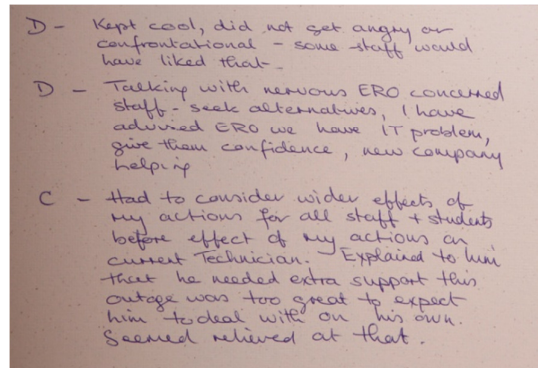 D - Kept cool, did not get angry or
confrontational - some staff would
have liked that -
D - Talking with nervous ERO concerned
staff - seek alternatives, I have
advised ERO we have IT problem,
give them confidence, new company
helping
C - Had to consider wider effects of
my actions for all staff + students
before effect of my actions on
current Technician. - Explained to him
that he needed extra support this
outage was too great to expect
him to deal with on his own.
Seemed relieved at that.